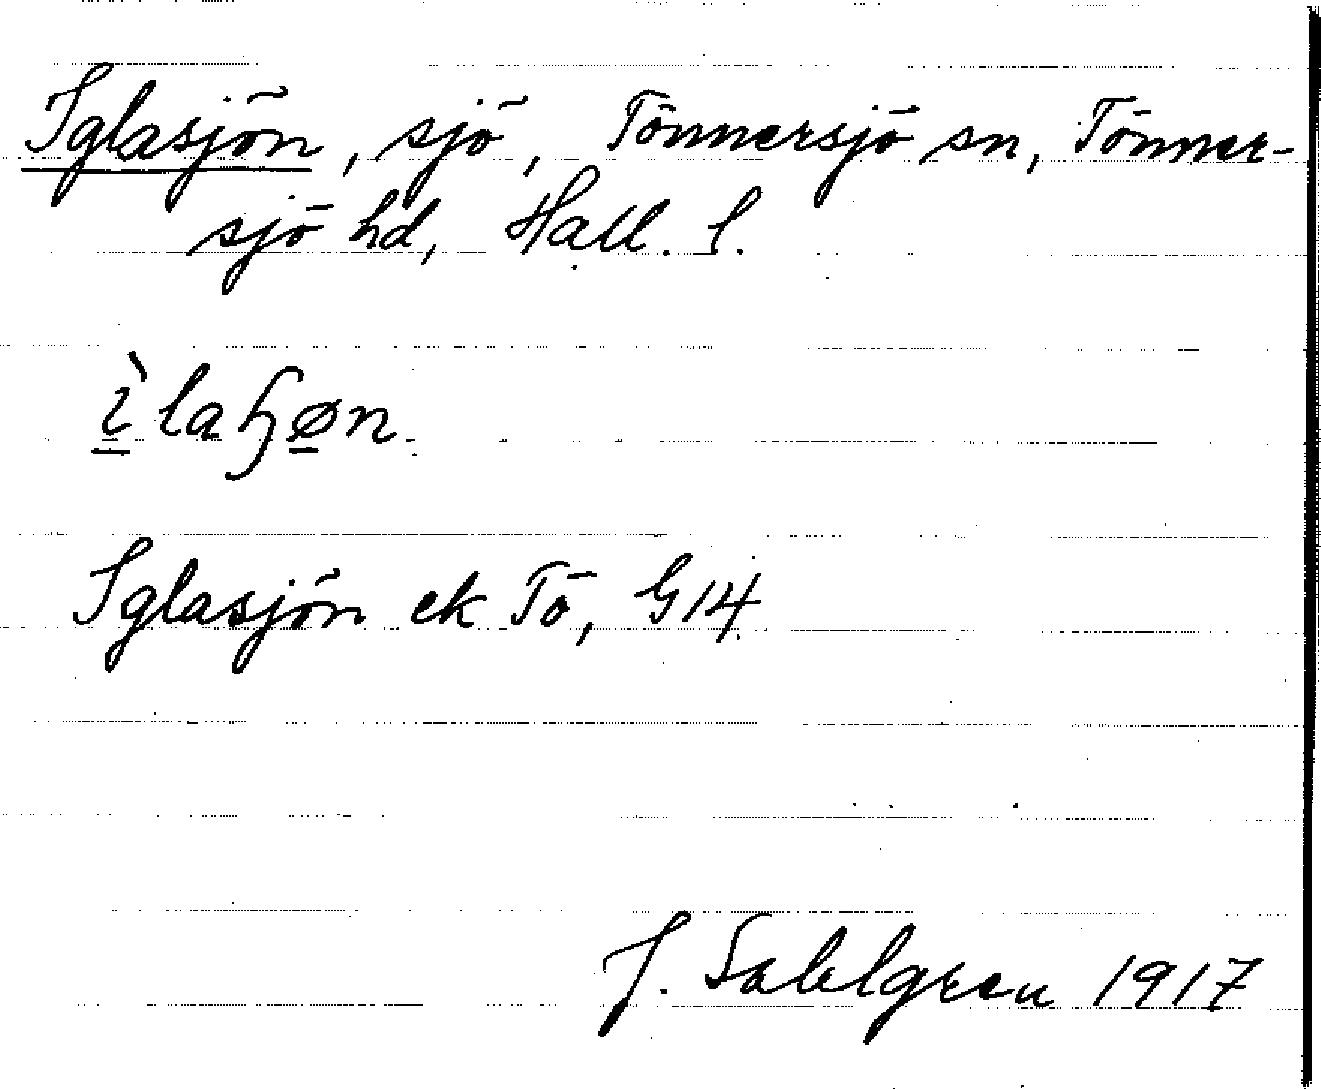 Iglasjön, sjö, Tönnersjö sn, Tönner-
sjö hd, Hall. l.
ìlaɧøn.
Iglasjön ek Tö, G14
J. Sahlgren 1917